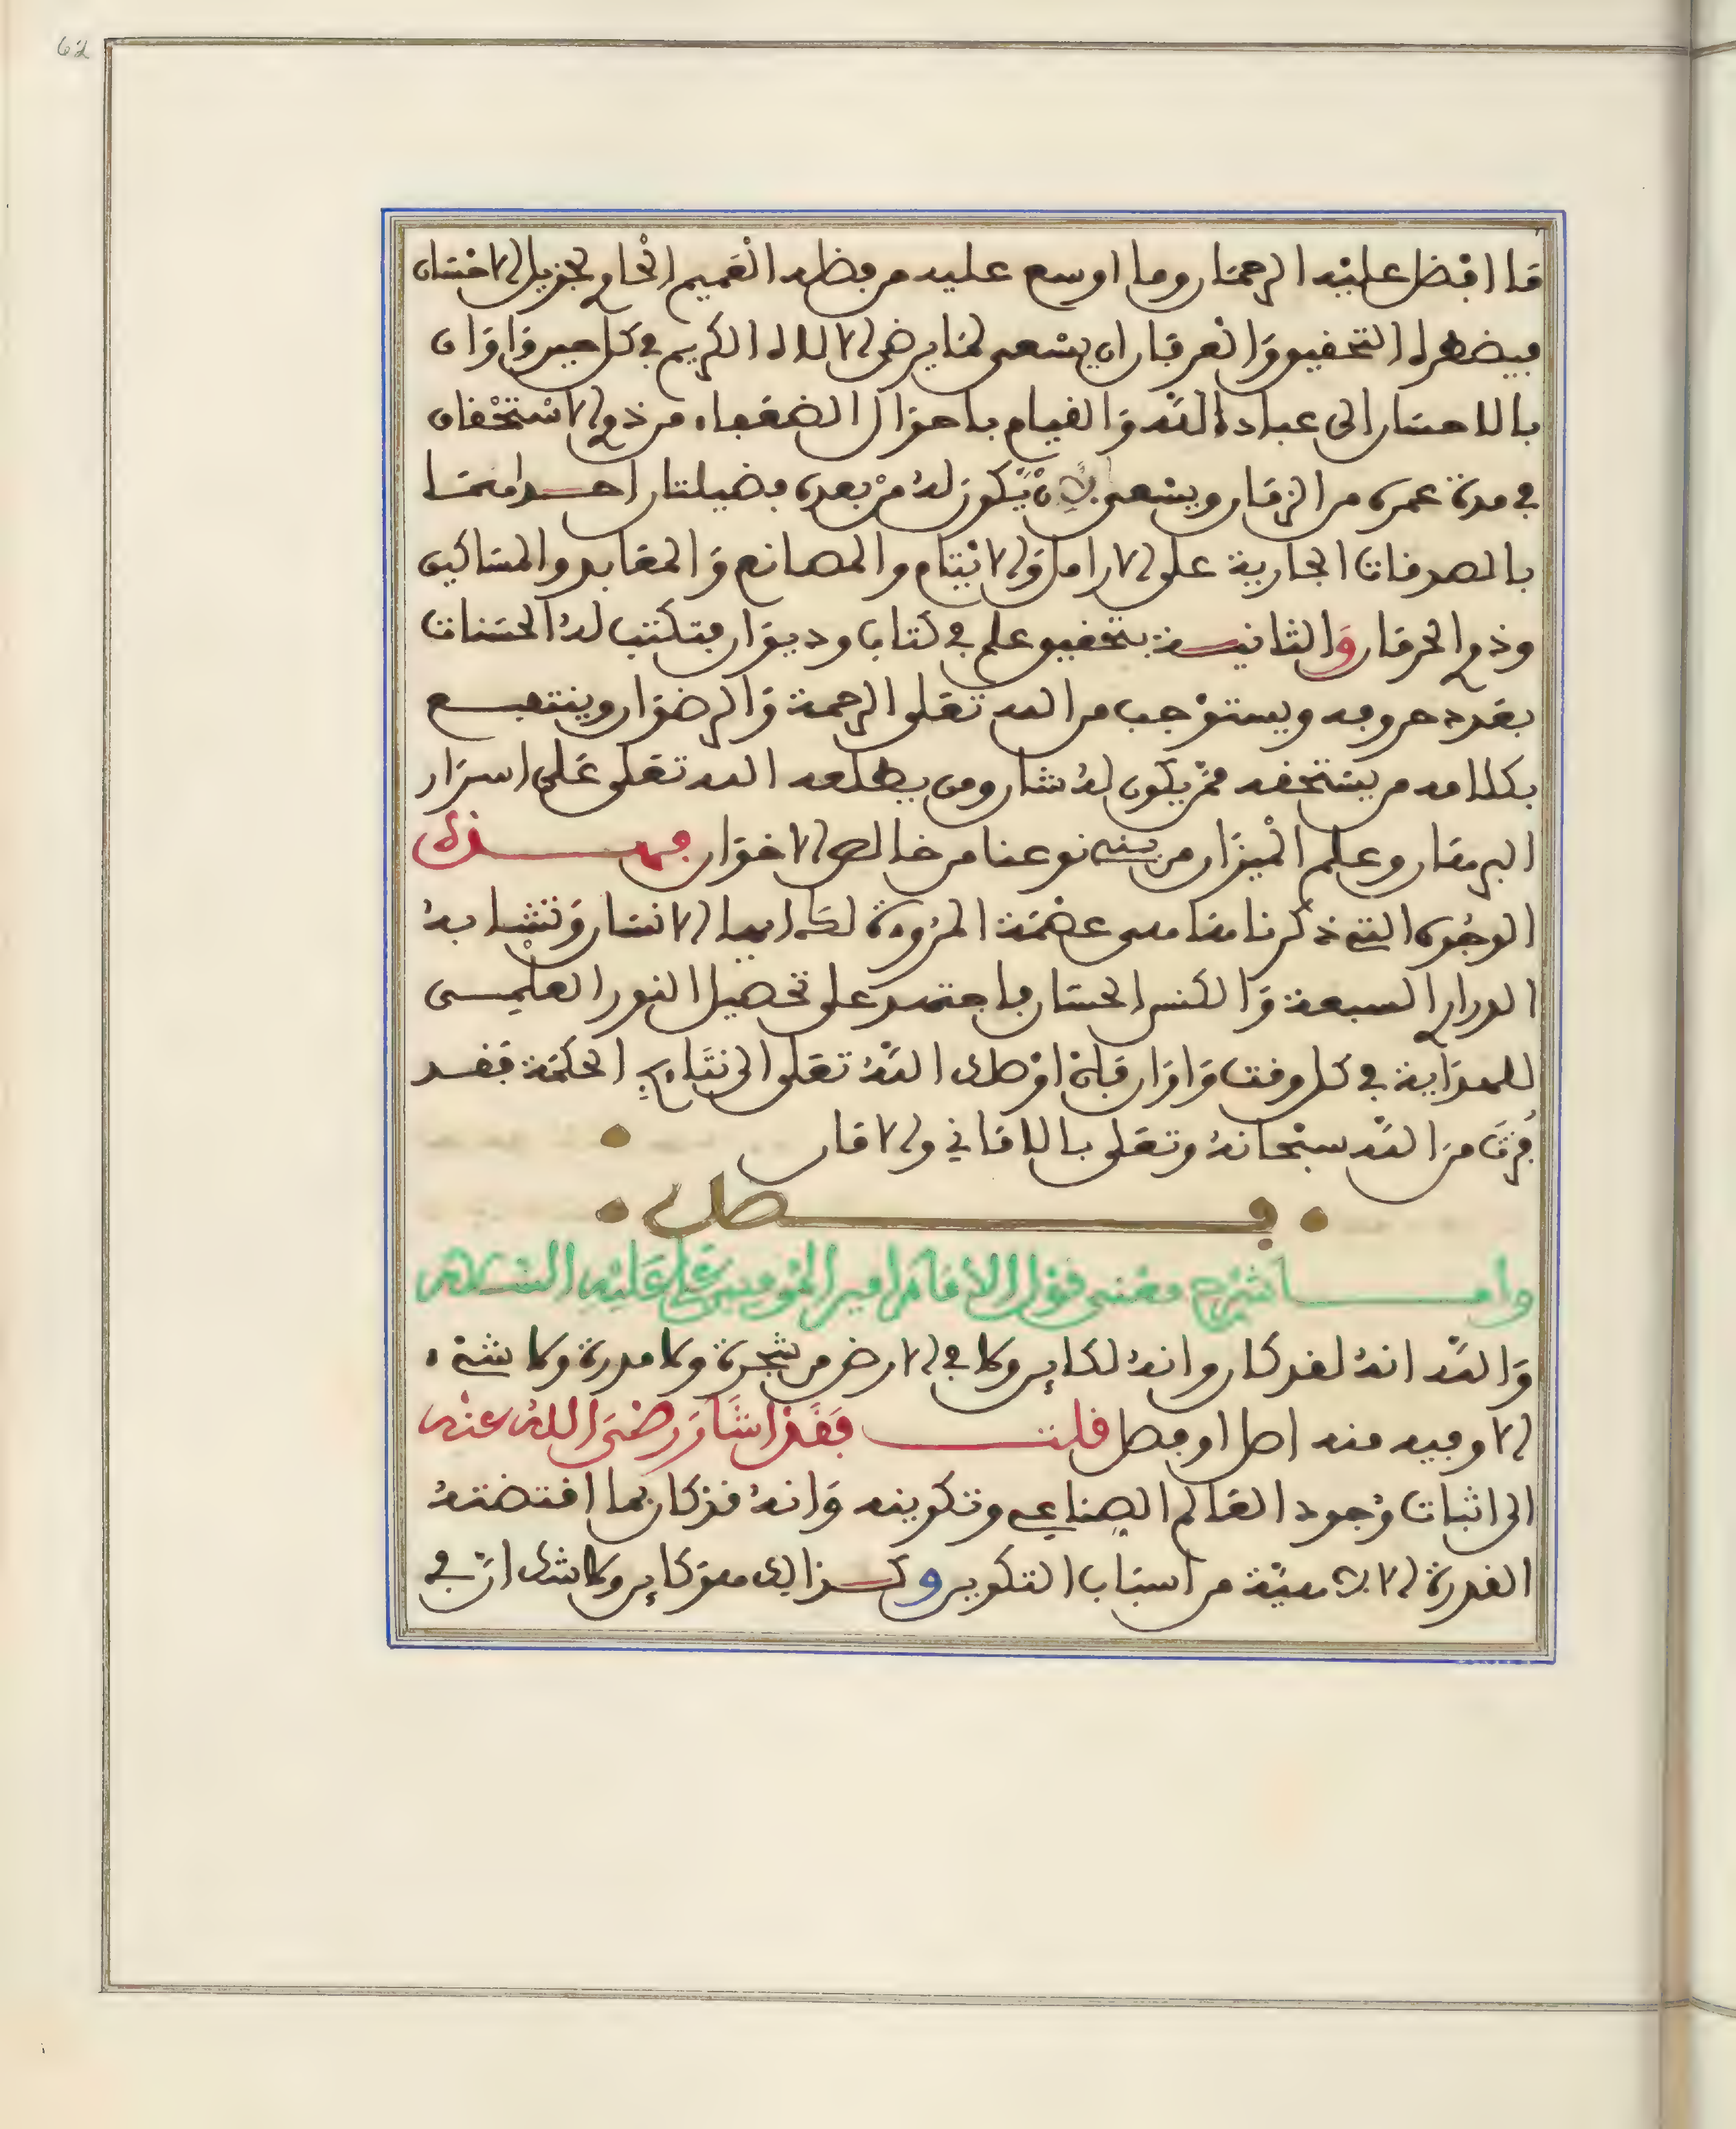 62
ما افضل عليه الرحمان وما اوسع عليه من فضله العميم الحاوي لجزيل الاحسان
فيضهر له التحقيق والعرفان ان يسعى لما يرضي الاله الكريم في كل حين واوان
بالاحسان الى عباد الله والقيام باحوال الضعفاء من ذوي الاستحقاق
في مدة عمره من الزمان ويسعى لان يكون له من بعده فضيلتان احداهما
بالصدقات الجارية على الارامل والايتام والمصانع والمعابد والمساكين
وذوي الحرمان والثانية بتحقيق علم في كتاب وديوان فتكتب له الحسنات
بعدد حروفه ويستوجب من الله تعلى الرحمة والرضوان وينتفع
بكلامه من يستحقه ممن يكون له شان ومن يطلعه الله تعلى على اسرار
البرهان وعلم الميزان من بني نوعنا من خالص الاخوان فهذه
الوجوه التي ذكرنا هنا هي عصمة المروة لك ايها الانسان وتشابه
الدراري السبعة والكنس الحسان فاجتهد على تحصيل النور العلمي
للهداية في كل وقت واوان فان اوصلك الله تعلى الى نتايج الحكمة فقد
فزت من الله سبحانه وتعلى بالاماني والامان
فصل
واما شرح معنى قول الامام امير المومنين علي عليه السلام
والله انه لقد كان وانه لكاين وما في الارض من شجرة ولا مدرة ولا شيء
الا وفيه منه اصل او فصل قلت فقد اشار رضي الله عنه
الى اثبات وجود العالم الصناعي وتكوينه وانه قد كان بما اقتضته
القدرة الالهية من اسباب التكوين وكذالك هو كاين ولا شك ان في